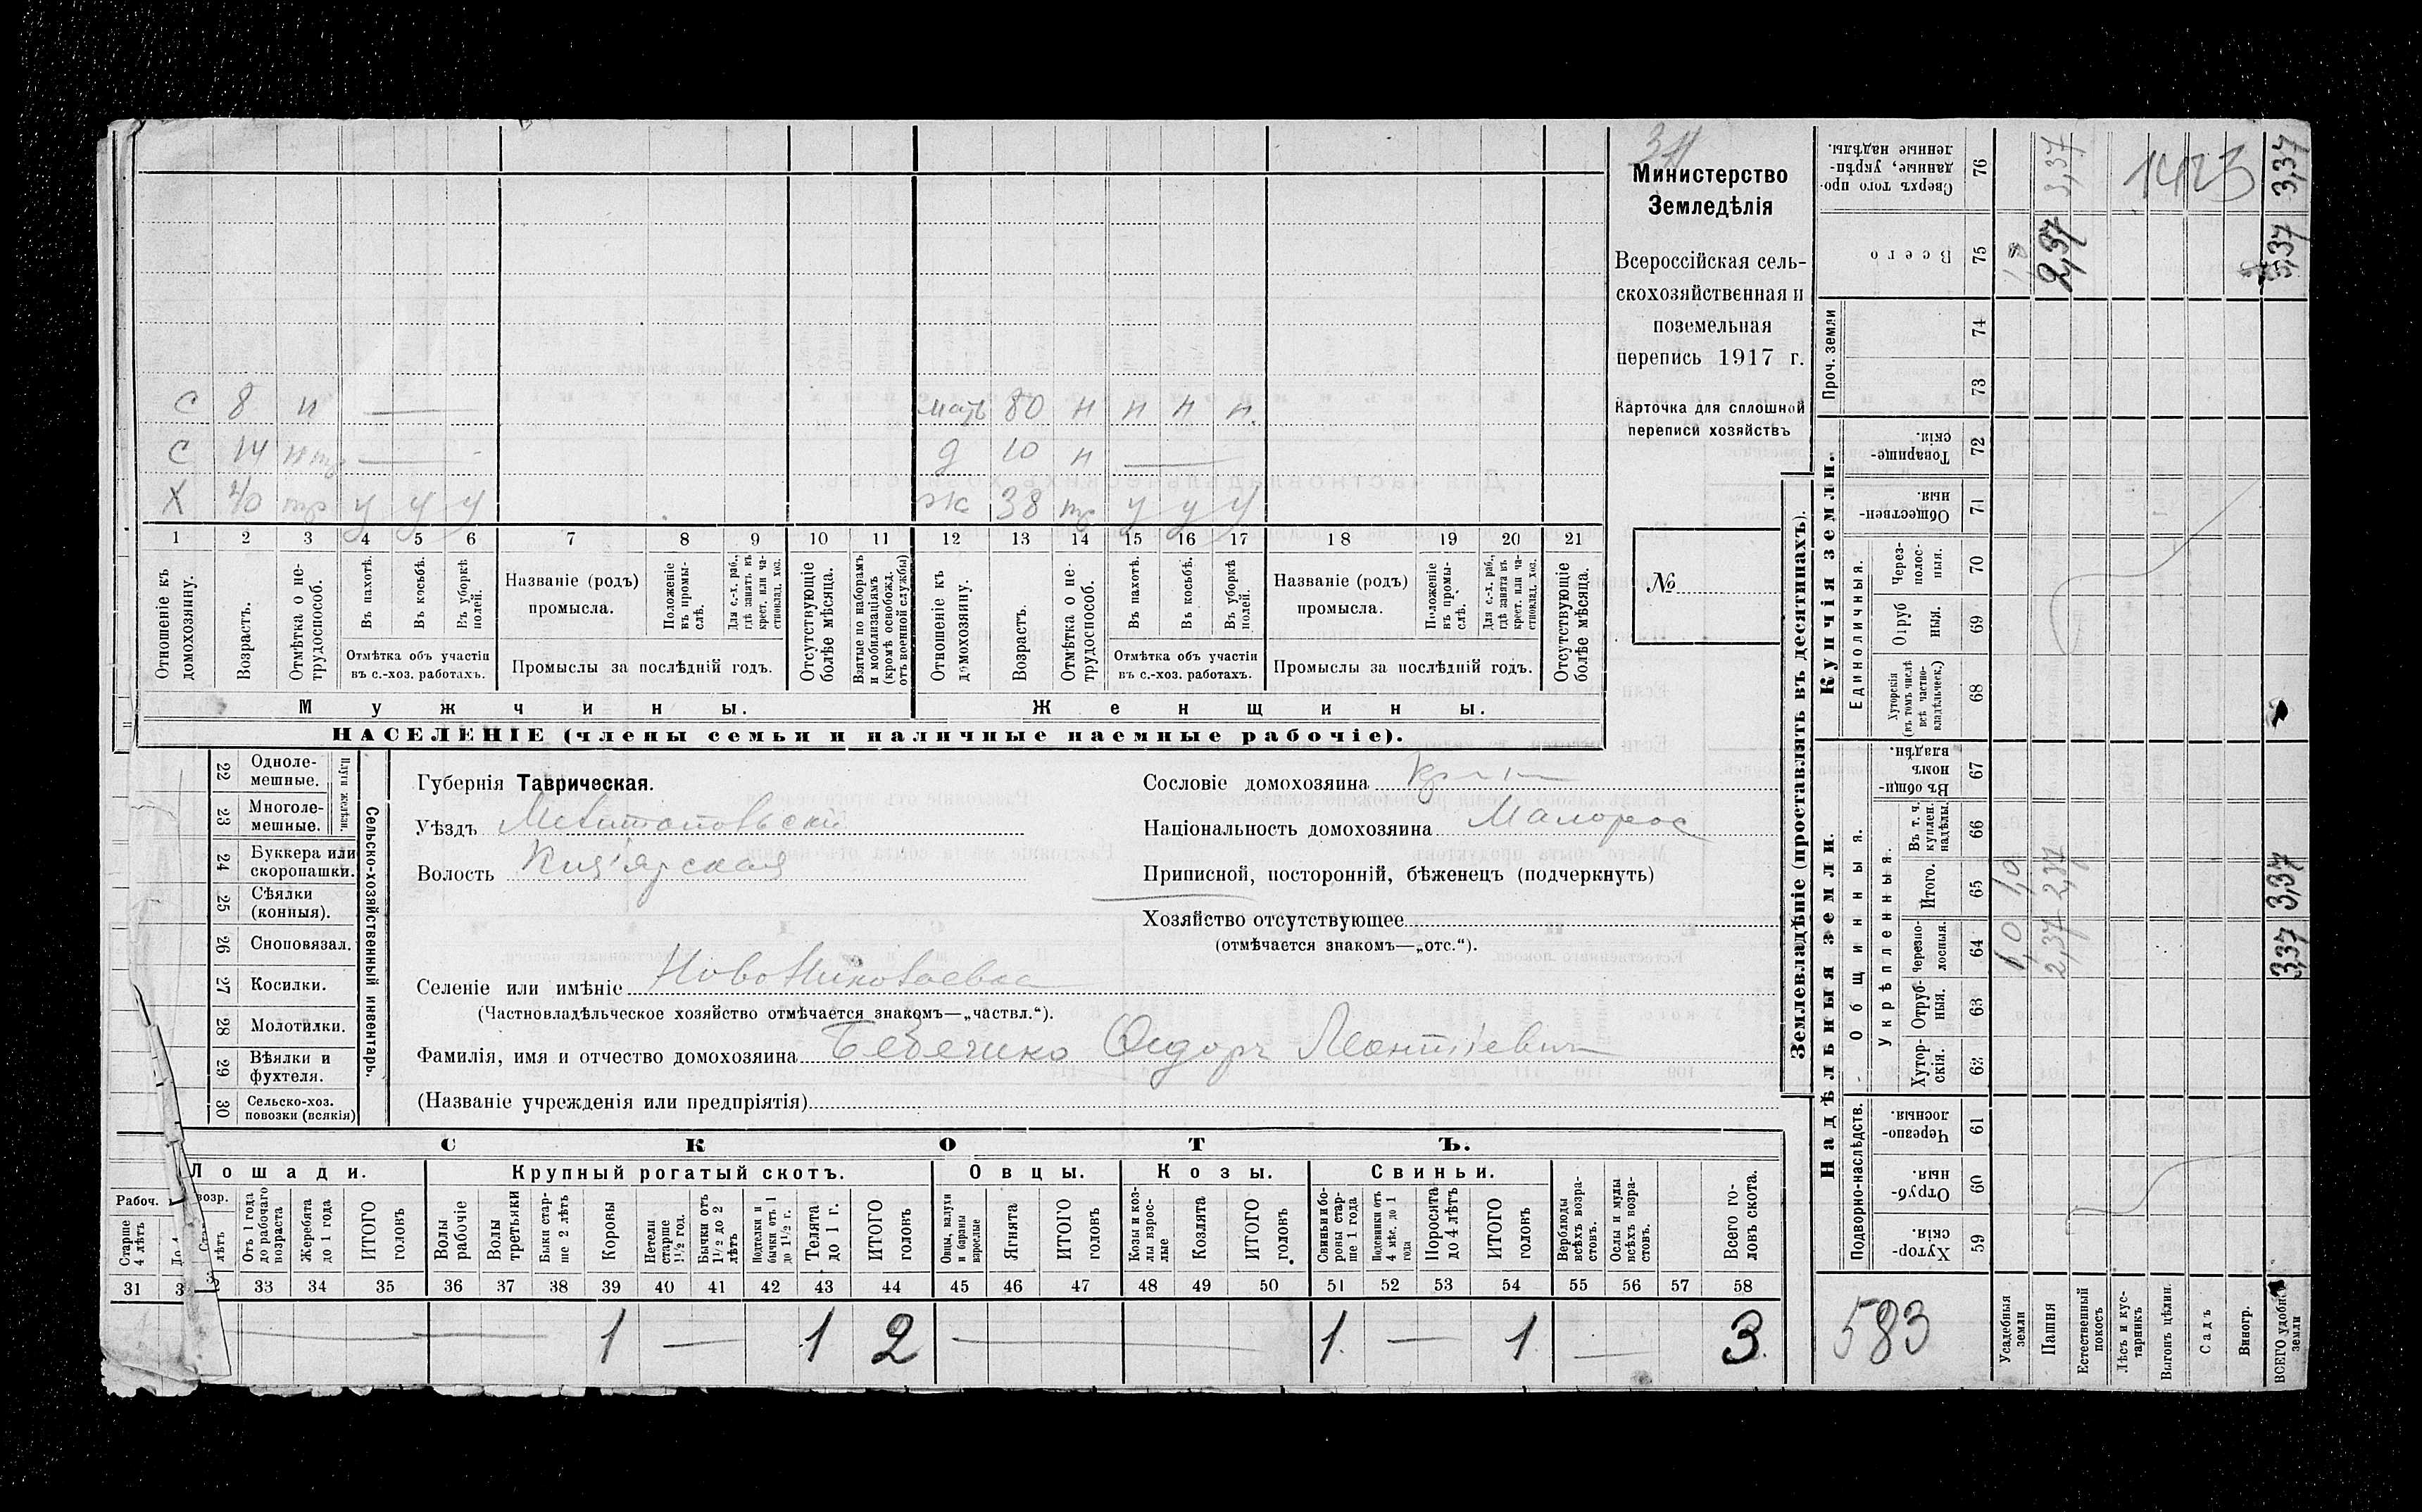 Министерство
Земледѣлія
Всероссійская сель-
скохозяйственная и
поземельная
перепись 1917 г.
Карточка для сплошной
переписи хозяйствъ
№
с 8 н
мать 80 н н н н
с 14
д 10 н
Х 40 тр у у у
ж 38 тр у у у
1 2 3 4 5 6 7 8 9 10 11 12 13 14 15 16 17 18 19 20 21
Отношеніе къ домохозяину.
Возрастъ.
Отмѣтка о не-трудоспособ.
Въ пахотѣ.
Въ косьбѣ.
Въ уборкѣ полей.
Отмѣтка объ участіи
въ с.-хоз. работахъ.
Названіе (родъ)
промысла.
Положеніе въ промы-слѣ.
Для с.-х. раб., гдѣ занятъ въ крест. или ча-стновлад. хоз.
Промыслы за послѣдній годъ.
Отсутствующіе болѣе мѣсяца.
Взятые по наборамъ и мобилизаціямъ (кромѣ освобожд. отъ военной службы)
Отношеніе къ домохозяину.
Возрастъ.
Отмѣтка о не-трудоспособ.
Въ пахотѣ.
Въ косьбѣ.
Въ уборкѣ полей.
Отмѣтка объ участіи
въ с.-хоз. работахъ.
Названіе (родъ)
промысла.
Положеніе въ промы-слѣ.
Для с.-х. раб., гдѣ занята въ крест. или ча-стновлад. хоз.
Промыслы за послѣдній годъ.
Отсутствующіе болѣе мѣсяца.
Мужчины.
Женщины.
НАСЕЛЕНІЕ (члены семьи и наличные наемные рабочіе).
22 Одноле-мешные.
23 Многоле-мешные.
Плуги желѣзн.
24 Буккера или скоропашки.
25 Сѣялки (конныя).
26 Сноповязал.
27 Косилки.
28 Молотилки.
29 Вѣялки и фухтеля.
30 Сельско-хоз. повозки (всякія)
Сельско-хозяйственный инвентарь.
Губернія Таврическая.
Уѣздъ Мелитопольскій
Волость
Сословіе домохозяина
Національность домохозяина Малорос
Приписной, посторонній, бѣженецъ (подчеркнуть)
Хозяйство отсутствующее
(отмѣчается знакомъ—„отс.“).
Селеніе или имѣніе НовоНиколаевка
(Частновладѣльческое хозяйство отмѣчается знакомъ—„частвл.“).
Фамилія, имя и отчество домохозяина Сидоръ Леонтіевич
(Названіе учрежденія или предпріятія)
СКОТЪ.
Лошади.
Крупный рогатый скотъ.
Овцы.
Козы.
Свиньи.
Рабоч.
Старше 4 лѣтъ
Отъ 1 года до рабочаго возраста
Жеребята до 1 года
ИТОГО головъ
Волы рабочіе
Волы третьяки
Быки стар-ше 2 лѣтъ
Коровы
Нетели старше 1½ год.
Бычки отъ 1½ до 2 лѣтъ
Подтелки и бычки отъ 1 до 1½ г.
Телята до 1 г.
ИТОГО головъ
Овцы, валухи и бараны взрослые
Ягнята
ИТОГО головъ
Козы и коз-лы взрос-лые
Козлята
ИТОГО головъ
Свиньи и бо-ровы стар-ше 1 года
Подсвинки отъ 4 мѣс. до 1 года
Поросята до 4 лѣтъ
ИТОГО головъ
Верблюды всѣхъ возра-стовъ.
Ослы и мулы всѣхъ возра-стовъ.
Всего го-ловъ скота.
31 33 34 35 36 37 38 39 40 41 42 43 44 45 46 47 48 49 50 51 52 53 54 55 56 57 58
1 — 1 2 — 1 — 1 — 3
Землевладѣніе (проставлять въ десятинахъ).
Купчія земли.
Надѣльныя земли.
Сверхъ того про-данные, укрѣп-ленные надѣлы. 76
Всего 75
Проч. земли
74
73
Товарище-скія. 72
Обществен-ныя. 71
Единоличныя.
Через-полос-ныя. 70
Отруб-ныя. 69
Хуторскія (въ томъ числѣ всѣ частно-владѣльческ.) 68
Въ общин-номъ владѣн. 67
Общинныя.
Укрѣпленныя.
Въ т. ч. куплен. надѣлы. 66
Итого. 65
Черезпо-лосныя. 64
Отруб-ныя. 63
Хутор-скія. 62
Подворно-наслѣдств.
Черезпо-лосныя. 61
Отруб-ныя. 60
Хутор-скія. 59
Усадебныя земли 1,0 1,0
Пашня 2,37 2,37 2,37 3,37
Естественный покосъ
Лѣсъ и кус-тарникъ
Выгонъ цѣлин.
Садъ
Виногр.
ВСЕГО удобн. земли 3,37 3,37 3,37 3,37
1423
583